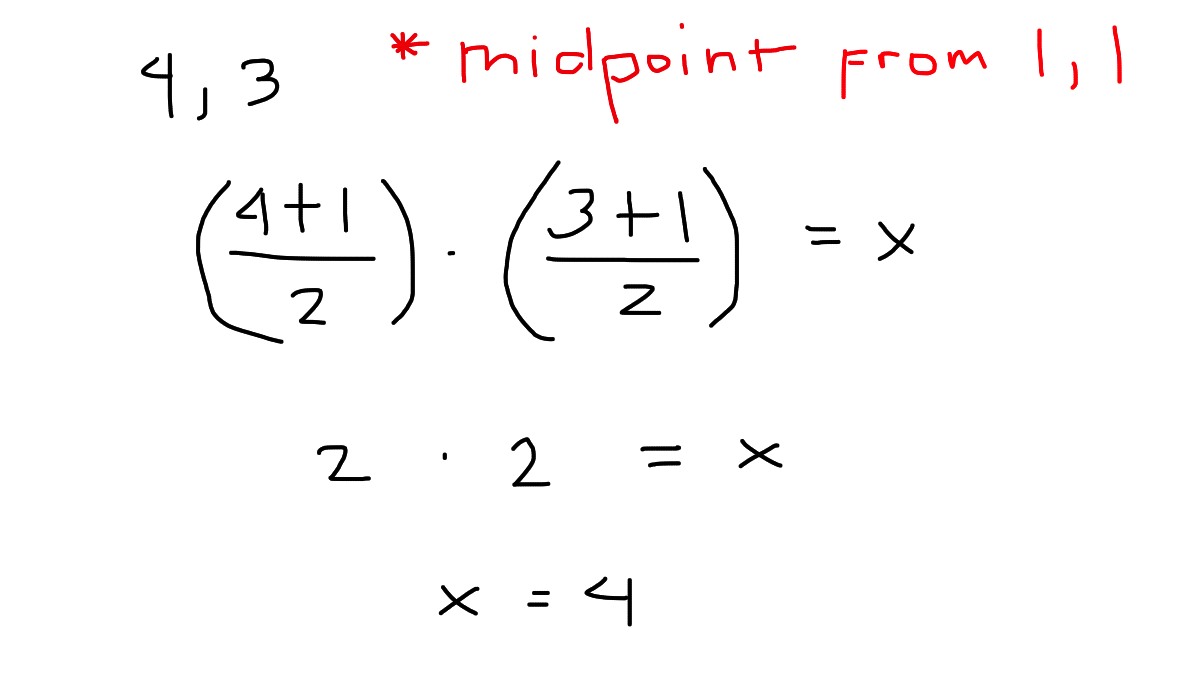 4, 3 * midpoint from 1, 1
(4+1/2) · (3+1/2) = x
2 · 2 = x
x = 4